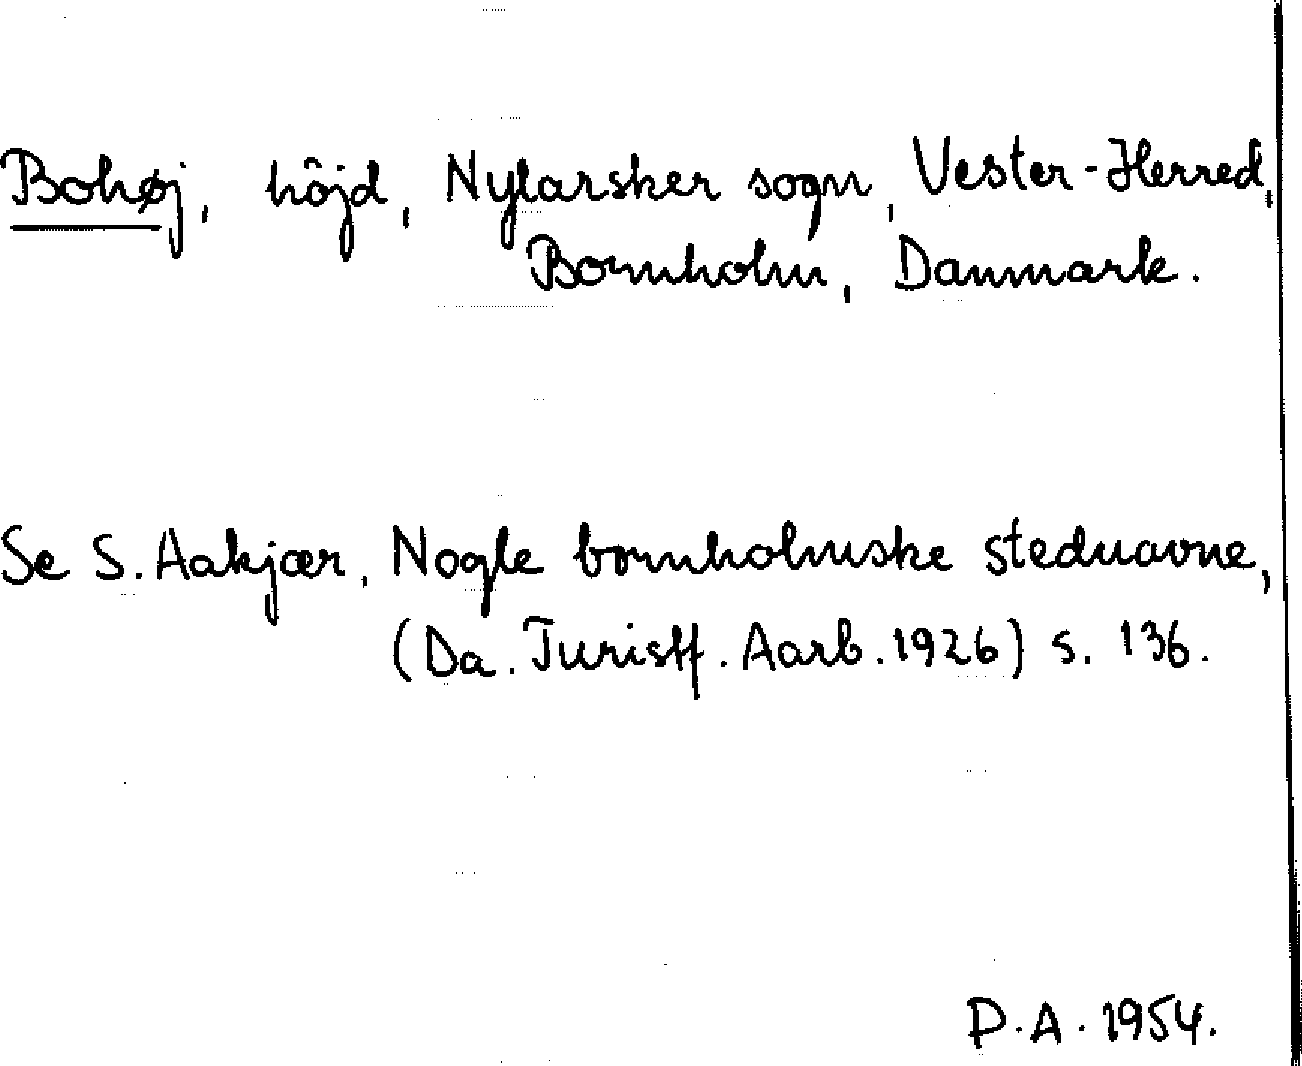 Bohøj, höjd, Nylarsker sogn, Vester-Herred,
Bornholm, Danmark.
Se S. Aakjær, Nogle bornholmske stednavne,
(Da. Turistf. Aarb. 1926) s. 136.
P.A. 1954.